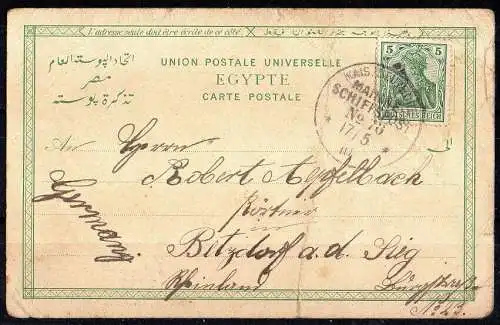 L'adresse seule doit être écrite de ce côté.
اتحاد البوستة العام
مصر
تذكرة بوسته
UNION POSTALE UNIVERSELLE
EGYPTE
CARTE POSTALE
5 5
DEUTSCHES REICH
KAIS. DEUTSCHE
MARINE
SCHIFFSPOST
No
17/5
An Herrn
Robert Apfelbach
Betzdorf a. d. Sieg
Rheinland
No 23.
Germany.